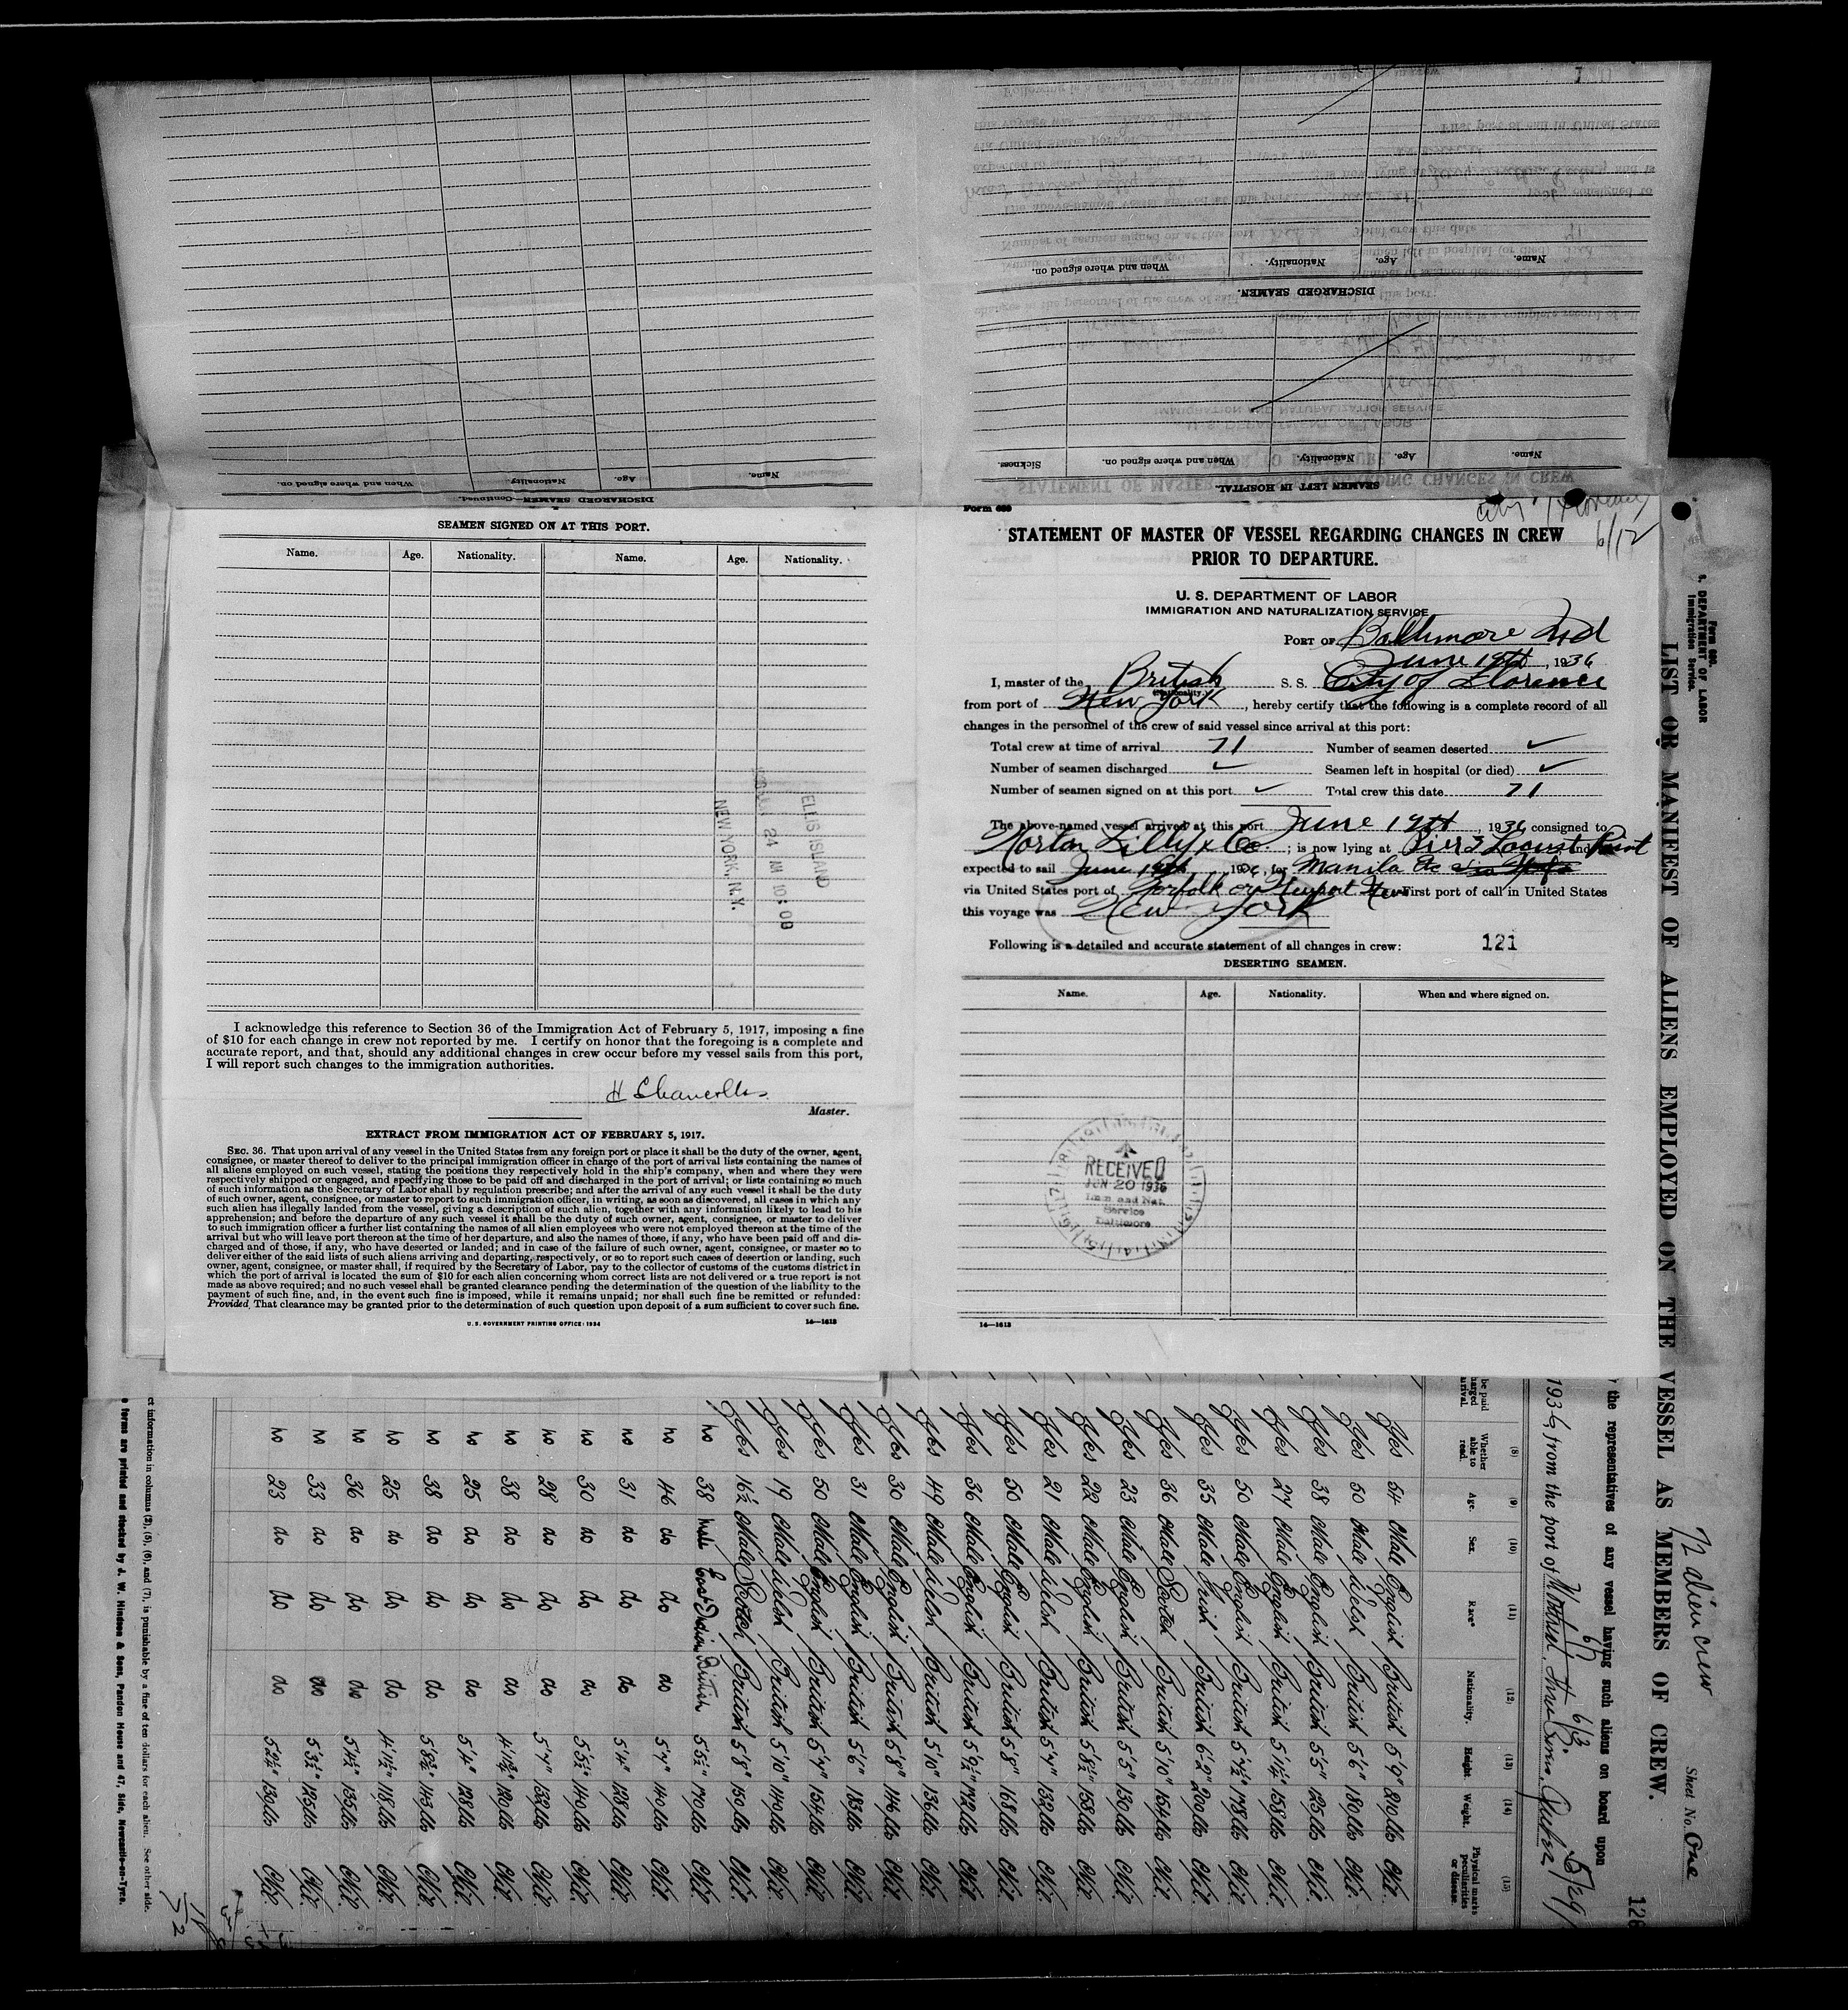 SEAMEN SIGNED ON AT THIS PORT.
Name. Age. Nationality. Name. Age. Nationality.
ELLIS ISLAND
24 AM 10:00
NEW YORK, N.Y.
I acknowledge this reference to Section 36 of the Immigration Act of February 5, 1917, imposing a fine
of $10 for each change in crew not reported by me. I certify on honor that the foregoing is a complete and
accurate report, and that, should any additional changes in crew occur before my vessel sails from this port,
I will report such changes to the immigration authorities.
Master.
EXTRACT FROM IMMIGRATION ACT OF FEBRUARY 5, 1917.
SEC. 36. That upon arrival of any vessel in the United States from any foreign port or place it shall be the duty of the owner, agent,
consignee, or master thereof to deliver to the principal immigration officer in charge of the port of arrival lists containing the names of
all aliens employed on such vessel, stating the positions they respectively hold in the ship's company, when and where they were
respectively shipped or engaged, and specifying those to be paid off and discharged in the port of arrival; or lists containing so much
of such information as the Secretary of Labor shall by regulation prescribe; and after the arrival of any such vessel it shall be the duty
of such owner, agent, consignee, or master to report to such immigration officer, in writing, as soon as discovered, all cases in which any
such alien has illegally landed from the vessel, giving a description of such alien, together with any information likely to lead to his
apprehension; and before the departure of any such vessel it shall be the duty of such owner, agent, consignee, or master to deliver
to such immigration officer a further list containing the names of all alien employees who were not employed thereon at the time of the
arrival but who will leave port thereon at the time of her departure, and also the names of those, if any, who have been paid off and dis-
charged and of those, if any, who have deserted or landed; and in case of the failure of such owner, agent, consignee, or master so to
deliver either of the said lists of such aliens arriving and departing, respectively, or so to report such cases of desertion or landing, such
owner, agent, consignee, or master shall, if required by the Secretary of Labor, pay to the collector of customs of the customs district in
which the port of arrival is located the sum of $10 for each alien concerning whom correct lists are not delivered or a true report is not
made as above required; and no such vessel shall be granted clearance pending the determination of the question of the liability to the
payment of such fine, and, in the event such fine is imposed, while it remains unpaid; nor shall such fine be remitted or refunded:
Provided, That clearance may be granted prior to the determination of such question upon deposit of a sum sufficient to cover such fine.
U. S. GOVERNMENT PRINTING OFFICE: 1934 14—1613
DISCHARGED SEAMEN—Continued.
Name. Age. Nationality. When and where signed on.
SEAMEN LEFT IN HOSPITAL.
Name. Age. Nationality. When and where signed on. Sickness.
DISCHARGED SEAMEN.
Name. Age. Nationality. When and where signed on.
6/12
Form 689
STATEMENT OF MASTER OF VESSEL REGARDING CHANGES IN CREW
PRIOR TO DEPARTURE.
U. S. DEPARTMENT OF LABOR
IMMIGRATION AND NATURALIZATION SERVICE
PORT OF Baltimore Md
June 19th, 1936
I, master of the British S. S. City of Florence
(Nationality.)
from port of New York, hereby certify that the following is a complete record of all
changes in the personnel of the crew of said vessel since arrival at this port:
Total crew at time of arrival 71 Number of seamen deserted ✓
Number of seamen discharged ✓ Seamen left in hospital (or died) ✓
Number of seamen signed on at this port ✓ Total crew this date 71
The above-named vessel arrived at this port June 19th, 1936 consigned to
Norton Lilly & Co ; is now lying at Pier 3 Locust Point and
expected to sail June 19th, 1936, for Manila etc
via United States port of Norfolk or Newport News First port of call in United States
this voyage was New York
Following is a detailed and accurate statement of all changes in crew: 121
DESERTING SEAMEN.
Name. Age. Nationality. When and where signed on.
RECEIVED
JUN 20 1936
Imm. and Nat.
Service
Baltimore
14—1613
Form 680.
S. DEPARTMENT OF LABOR
Immigration Service.
LIST OR MANIFEST OF ALIENS EMPLOYED ON THE VESSEL AS MEMBERS OF CREW.
72 alien crew
Sheet No. One
the representatives of any vessel having such aliens on board upon
126
1936, from the port of
5/29/
(8) (9) (10) (11) (12) (13) (14) (15)
Whether able to read. Age. Sex. Race* Nationality. Height. Weight. Physical marks peculiarities or disease.
Yes 54 Male English British 5'9" 210 lbs Nil.
Yes 50 Male Welsh British 5'6" 180 lbs Nil.
Yes 38 Male English British 5'5" 125 lbs Nil.
Yes 27 Male English British 5'11½" 158 lbs Nil.
Yes 50 Male English British 5'7½" 178 lbs Nil.
Yes 35 Male Irish British 6'2" 200 lbs Nil.
Yes 36 Male Scotch British 5'10" 154 lbs Nil.
Yes 23 Male English British 5'5" 130 lbs Nil.
Yes 22 Male English British 5'8½" 158 lbs Nil.
Yes 21 Male Welsh British 5'7" 132 lbs Nil.
Yes 50 Male English British 5'8" 168 lbs Nil.
Yes 36 Male English British 5'9½" 172 lbs Nil.
Yes 49 Male Welsh British 5'10" 136 lbs Nil.
Yes 30 Male English British 5'8" 146 lbs Nil.
Yes 31 Male English British 5'6" 183 lbs Nil.
Yes 50 Male English British 5'7" 154 lbs Nil.
Yes 19 Male Welsh British 5'10" 140 lbs Nil.
Yes 16½ Male Scotch British 5'8" 150 lbs Nil.
no 38 Male East Indian British 5'5½" 170 lbs Nil.
no 46 do do do 5'7" 140 lbs Nil.
no 31 do do do 5'4" 128 lbs Nil.
no 30 do do do 5'5½" 140 lbs Nil.
no 28 do do do 5'7" 132 lbs Nil.
no 38 do do do 4'11¾" 120 lbs Nil.
no 25 do do do 5'4" 128 lbs Nil.
no 38 do do do 5'8¾" 143 lbs Nil.
no 25 do do do 4'11½" 118 lbs Nil.
no 36 do do do 5'4½" 135 lbs Nil.
no 33 do do do 5'3½" 125 lbs Nil.
no 23 do do do 5'2½" 130 lbs Nil.
ct information in columns (2), (5), (6), and (7), is punishable by a fine of ten dollars for each alien. See other side.
forms are printed and stocked by J. W. Hindson & Sons, Pandon House and 47, Side, Newcastle-on-Tyne.